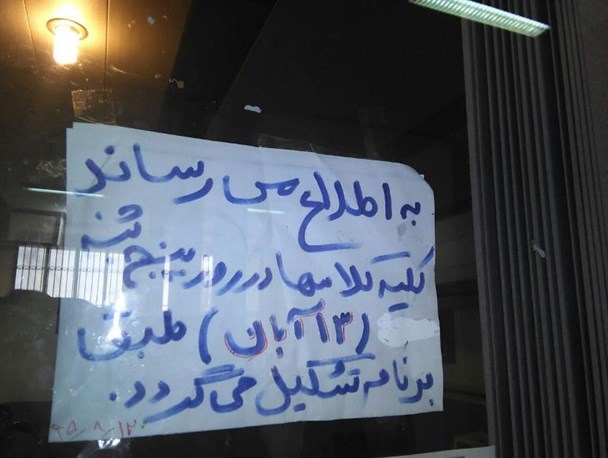 به اطلاع می رساند
کلیه کلاسها در روز پنج شنبه
(۱۳ آبان) طبق
برنامه تشکیل می گردد.
۹۵/۸/۱۲